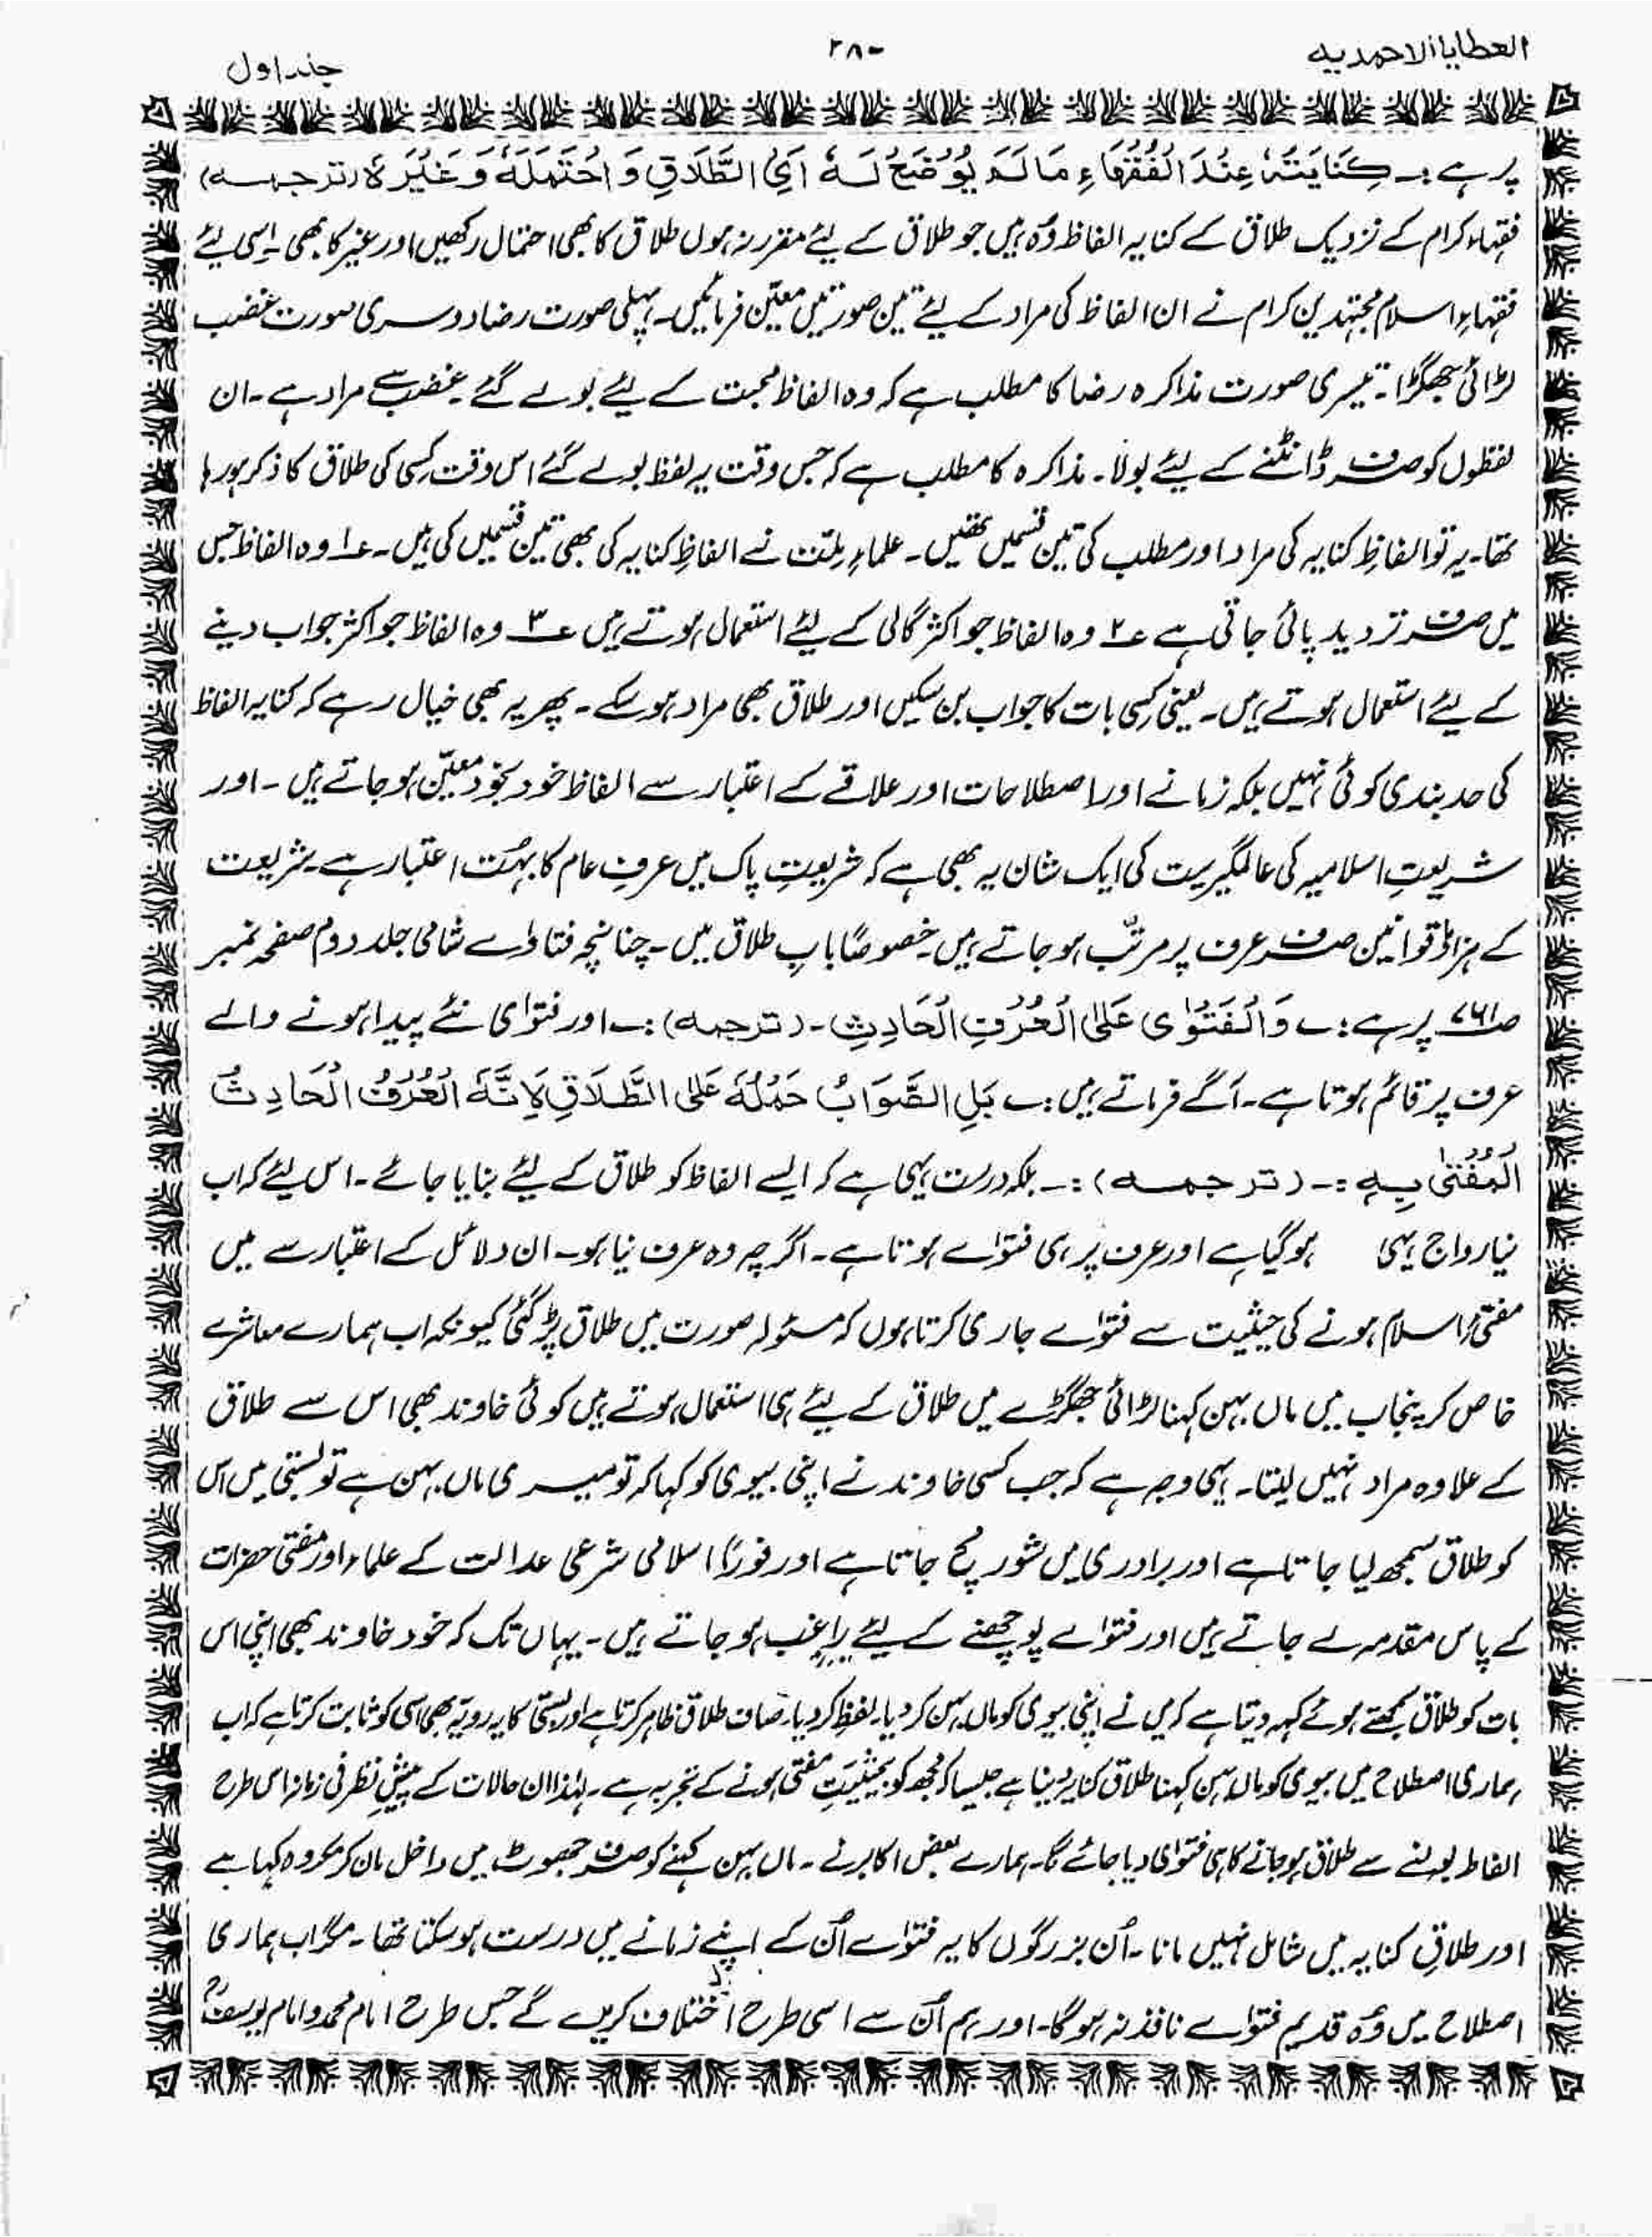 العطایا الاحمدیہ
۲۸۰
جلد اول
پر ہے :۔ كِنَايَتُهٗ عِنْدَ الْفُقَهَاءِ مَا لَمْ يُوْضَعْ لَهٗ اَيِ الطَّلَاقِ وَ احْتَمَلَهٗ وَ غَيْرَهٗ (ترجمہ)
فقہاء کرام کے نزدیک طلاق کے کنایہ الفاظ وُہ ہیں جو طلاق کے لیئے مقرر نہ ہوں طلاق کا بھی احتمال رکھیں اور غیر کا بھی ۔ اِسی لیئے
فقہاءِ اسلام مجتہدین کرام نے ان الفاظ کی مراد کے لیئے تین صورتیں معیّن فرمائیں۔ پہلی صورت رضا دوسری صورت غضب
لڑائی جھگڑا ۔ تیسری صورت مذاکرہ رضا کا مطلب ہے کہ وہ الفاظ محبت کے لیئے بولے گئے ۔ غضب سے مراد ہے ۔ ان
لفظوں کو صرف ڈانٹنے کے لیئے بولا ۔ مذاکرہ کا مطلب ہے کہ جس وقت یہ لفظ بولے گئے اس وقت کسی کی طلاق کا ذکر ہو رہا
تھا ۔ یہ تو الفاظِ کنایہ کی مراد اور مطلب کی تین قسمیں تھیں ۔ علماءِ ملّت نے الفاظِ کنایہ کی بھی تین قسمیں کی ہیں ۔ ۱؎ وہ الفاظ جس
میں صرف تردید پائی جاتی ہے ۲؎ وہ الفاظ جو اکثر گالی کے لیئے استعمال ہوتے ہیں ۳؎ وہ الفاظ جو اکثر جواب دینے
کے لیئے استعمال ہوتے ہیں ۔ یعنی کسی بات کا جواب بن سکیں اور طلاق بھی مراد ہو سکے ۔ پھر یہ بھی خیال رہے کہ کنایہ الفاظ
کی حد بندی کوئی نہیں بلکہ زمانے اور اصطلاحات اور علاقے کے اعتبار سے الفاظ خود بخود معیّن ہو جاتے ہیں ۔ اور
شریعتِ اسلامیہ کی عالمگیریت کی ایک شان یہ بھی ہے کہ شریعتِ پاک میں عرفِ عام کا بہُت اعتبار ہے ۔ شریعت
کے ہزارہا قوانین صرف عرف پر مرتّب ہو جاتے ہیں ۔ خصوصًا بابِ طلاق میں ۔ چنانچہ فتاوٰے شامی جلد دوم صفحہ نمبر
صـ۷۶۱ پر ہے :۔ وَالْفَتْوٰى عَلَى الْعُرْفِ الْحَادِثِ ۔ (ترجمہ) :۔ اور فتوٰی نئے پیدا ہونے والے
عرف پر قائم ہوتا ہے ۔ آگے فرماتے ہیں :۔ بَلِ الصَّوَابُ حَمْلُهٗ عَلَى الطَّلَاقِ لِاَنَّهُ الْعُرْفُ الْحَادِثُ
الْمُفْتٰى بِهٖ :۔ (ترجمہ) :۔ بلکہ درست یہی ہے کہ ایسے الفاظ کو طلاق کے لیئے بنایا جائے ۔ اس لیئے کہ اب
نیا رواج یہی ہو گیا ہے اور عرف پر ہی فتوٰے ہوتا ہے ۔ اگرچہ وہ عرف نیا ہو ۔ ان دلائل کے اعتبار سے میں
مفتیٔ اسلام ہونے کی حیثیت سے فتوٰے جاری کرتا ہوں کہ مسئولہ صورت میں طلاق پڑ گئی کیونکہ اب ہمارے معاشرے
خاص کر پنجاب میں ماں بہن کہنا لڑائی جھگڑے میں طلاق کے لیئے ہی استعمال ہوتے ہیں کوئی خاوند بھی اس سے طلاق
کے علاوہ مراد نہیں لیتا ۔ یہی وجہ ہے کہ جب کسی خاوند نے اپنی بیوی کو کہا کہ تو میری ماں بہن ہے تو بستی میں اس
کو طلاق سمجھ لیا جاتا ہے اور برادری میں شور مچ جاتا ہے اور فورًا اسلامی شرعی عدالت کے علماء اور مفتی حضرات
کے پاس مقدمہ لے جاتے ہیں اور فتوٰے پوچھنے کے لیئے راغب ہو جاتے ہیں ۔ یہاں تک کہ خود خاوند بھی اپنی اس
بات کو طلاق سمجھتے ہوئے کہہ دیتا ہے کہ میں نے اپنی بیوی کو ماں بہن کر دیا ۔ لفظ کر دیا ۔ صاف طلاق ظاہر کرتا ہے اور بستی کا یہ رویّہ بھی اسی کو ثابت کرتا ہے کہ اب
ہماری اصطلاح میں بیوی کو ماں بہن کہنا طلاق کنایہ دینا ہے جیسا کہ مجھ کو بحیثیتِ مفتی ہونے کے تجربہ ہے ۔ لہٰذا ان حالات کے پیشِ نظر فی زمانہ اس طرح
الفاظ بولنے سے طلاق ہو جانے کا ہی فتوٰی دیا جائے گا ۔ ہمارے بعض اکابر نے ۔ ماں بہن کہنے کو صرف جھوٹ میں داخل مان کر مکروہ کہا ہے
اور طلاقِ کنایہ میں شامل نہیں مانا ۔ اُن بزرگوں کا یہ فتوٰے اُن کے اپنے زمانے میں درست ہو سکتا تھا ۔ مگر اب ہماری
اصطلاح میں وُہ قدیم فتوٰے نافذ نہ ہوگا ۔ اور ہم اُن سے اسی طرح اختلاف کریں گے جس طرح امام محمد و امام یوسفؒ